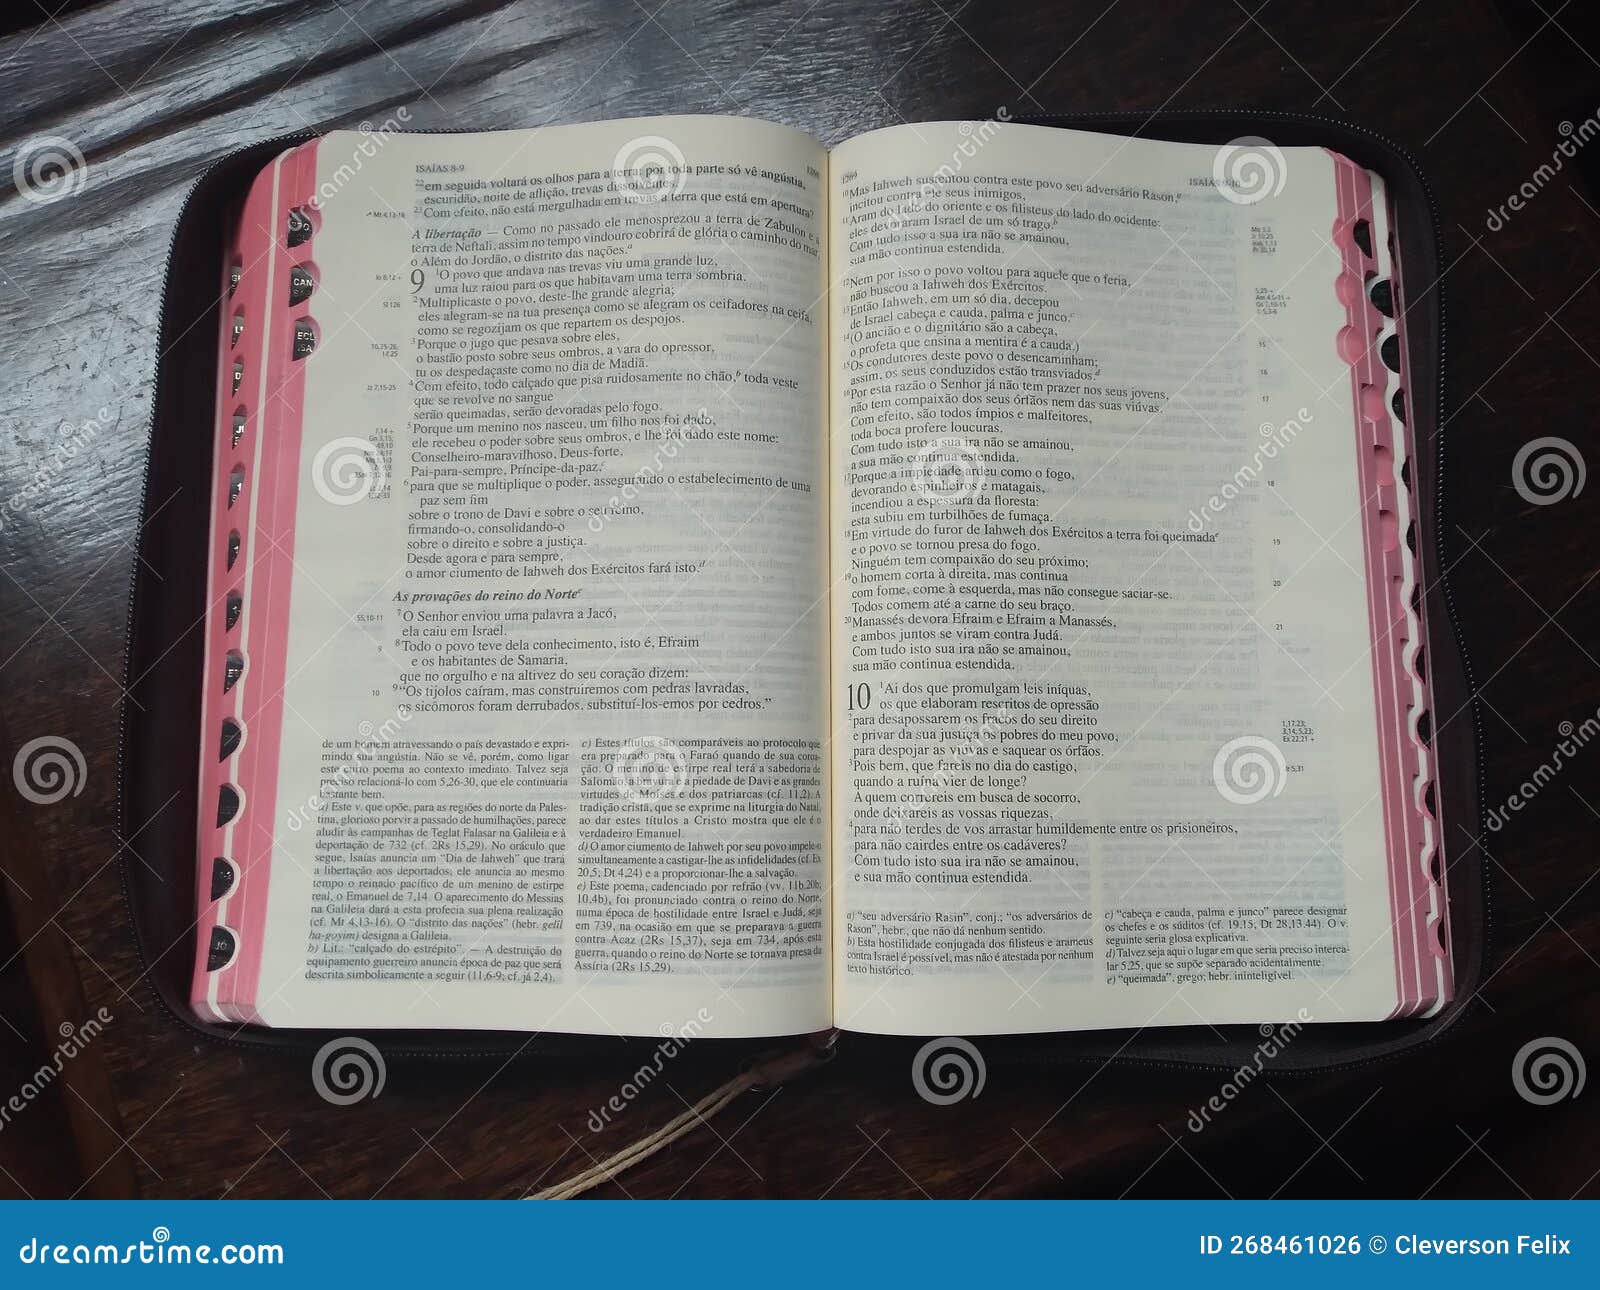 ISAÍAS 8-9
²²em seguida voltará os olhos para a terra: por toda parte só vê angústia,
escuridão, noite de aflição, trevas dissolventes.
²³Com efeito, não está mergulhada em trevas a terra que está em apertura?
Mt 4,13-16
A libertação — Como no passado ele menosprezou a terra de Zabulon e a
terra de Neftali, assim no tempo vindouro cobrirá de glória o caminho do mar,
o Além do Jordão, o distrito das nações.ᵃ
Jo 8,12 +
9 ¹O povo que andava nas trevas viu uma grande luz,
uma luz raiou para os que habitavam uma terra sombria.
Sl 126
²Multiplicaste o povo, deste-lhe grande alegria;
eles alegram-se na tua presença como se alegram os ceifadores na ceifa,
como se regozijam os que repartem os despojos.
10,25-26;
14,25
³Porque o jugo que pesava sobre eles,
o bastão posto sobre seus ombros, a vara do opressor,
tu os despedaçaste como no dia de Madiã.
Jz 7,15-25
⁴Com efeito, todo calçado que pisa ruidosamente no chão,ᵇ toda veste
que se revolve no sangue
serão queimadas, serão devoradas pelo fogo.
7,14 +
⁵Porque um menino nos nasceu, um filho nos foi dado,
ele recebeu o poder sobre seus ombros, e lhe foi dado este nome:
Conselheiro-maravilhoso, Deus-forte,
Pai-para-sempre, Príncipe-da-paz,ᶜ
⁶para que se multiplique o poder, assegurando o estabelecimento de uma
paz sem fim
sobre o trono de Davi e sobre o seu reino,
firmando-o, consolidando-o
sobre o direito e sobre a justiça.
Desde agora e para sempre,
o amor ciumento de Iahweh dos Exércitos fará isto.ᵈ
As provações do reino do Norteᵉ
55,10-11
⁷O Senhor enviou uma palavra a Jacó,
ela caiu em Israel.
9
⁸Todo o povo teve dela conhecimento, isto é, Efraim
e os habitantes de Samaria,
que no orgulho e na altivez do seu coração dizem:
10
⁹“Os tijolos caíram, mas construiremos com pedras lavradas,
os sicômoros foram derrubados, substituí-los-emos por cedros.”
de um homem atravessando o país devastado e expri-
mindo sua angústia. Não se vê, porém, como ligar
este outro poema ao contexto imediato. Talvez seja
preciso relacioná-lo com 5,26-30, que ele continuaria
bastante bem.
a) Este v. que opõe, para as regiões do norte da Pales-
tina, glorioso porvir a passado de humilhações, parece
aludir às campanhas de Teglat Falasar na Galileia e à
deportação de 732 (cf. 2Rs 15,29). No oráculo que
segue, Isaías anuncia um “Dia de Iahweh” que trará
a libertação aos deportados; ele anuncia ao mesmo
tempo o reinado pacífico de um menino de estirpe
real, o Emanuel de 7,14. O aparecimento do Messias
na Galileia dará a esta profecia sua plena realização
(cf. Mt 4,13-16). O “distrito das nações” (hebr. gelil
ha-goyim) designa a Galileia.
b) Lit.: “calçado do estrépito”. — A destruição do
equipamento guerreiro anuncia época de paz que será
descrita simbolicamente a seguir (11,6-9; cf. já 2,4).
c) Estes títulos são comparáveis ao protocolo que
era preparado para o Faraó quando de sua coroa-
ção. O menino de estirpe real terá a sabedoria de
Salomão, a bravura e a piedade de Davi e as grandes
virtudes de Moisés e dos patriarcas (cf. 11,2). A
tradição cristã, que se exprime na liturgia do Natal,
ao dar estes títulos a Cristo mostra que ele é o
verdadeiro Emanuel.
d) O amor ciumento de Iahweh por seu povo impele-o
simultaneamente a castigar-lhe as infidelidades (cf. Ex
20,5; Dt 4,24) e a proporcionar-lhe a salvação.
e) Este poema, cadenciado por refrão (vv. 11b.20b;
10,4b), foi pronunciado contra o reino do Norte,
numa época de hostilidade entre Israel e Judá, seja
em 739, na ocasião em que se preparava a guerra
contra Acaz (2Rs 15,37), seja em 734, após esta
guerra, quando o reino do Norte se tornava presa da
Assíria (2Rs 15,29).
¹⁰Mas Iahweh sustentou contra este povo seu adversário Rason,ᵃ
incitou contra ele seus inimigos,
¹¹Aram do lado do oriente e os filisteus do lado do ocidente:
eles devoraram Israel de um só trago.ᵇ
Com tudo isso a sua ira não se amainou,
sua mão continua estendida.
¹²Nem por isso o povo voltou para aquele que o feria,
não buscou a Iahweh dos Exércitos.
¹³Então Iahweh, em um só dia, decepou
de Israel cabeça e cauda, palma e junco.ᶜ
¹⁴(O ancião e o dignitário são a cabeça,
o profeta que ensina a mentira é a cauda.)
15
¹⁵Os condutores deste povo o desencaminham;
assim, os seus conduzidos estão transviados.ᵈ
16
¹⁶Por esta razão o Senhor já não tem prazer nos seus jovens,
não tem compaixão dos seus órfãos nem das suas viúvas.
17
Com efeito, são todos ímpios e malfeitores,
toda boca profere loucuras.
Com tudo isto a sua ira não se amainou,
a sua mão continua estendida.
¹⁷Porque a impiedade ardeu como o fogo,
18
devorando espinheiros e matagais,
incendiou a espessura da floresta:
esta subiu em turbilhões de fumaça.
¹⁸Em virtude do furor de Iahweh dos Exércitos a terra foi queimadaᵉ
19
e o povo se tornou presa do fogo.
Ninguém tem compaixão do seu próximo;
¹⁹o homem corta à direita, mas continua
20
com fome, come à esquerda, mas não consegue saciar-se.
Todos comem até a carne do seu braço.
²⁰Manassés devora Efraim e Efraim a Manassés,
21
e ambos juntos se viram contra Judá.
Com tudo isto sua ira não se amainou,
sua mão continua estendida.
10 ¹Ai dos que promulgam leis iníquas,
os que elaboram rescritos de opressão
1,17.23;
3,14; 5,23;
Ex 22,21 +
²para desapossarem os fracos do seu direito
e privar da sua justiça os pobres do meu povo,
para despojar as viúvas e saquear os órfãos.
³Pois bem, que fareis no dia do castigo,
quando a ruína vier de longe?
A quem correreis em busca de socorro,
onde deixareis as vossas riquezas,
⁴para não terdes de vos arrastar humildemente entre os prisioneiros,
para não cairdes entre os cadáveres?
Com tudo isto sua ira não se amainou,
e sua mão continua estendida.
a) “seu adversário Rasin”, conj.; “os adversários de
Rason”, hebr., que não dá nenhum sentido.
b) Esta hostilidade conjugada dos filisteus e arameus
contra Israel é possível, mas não é atestada por nenhum
texto histórico.
c) “cabeça e cauda, palma e junco” parece designar
os chefes e os súditos (cf. 19,15; Dt 28,13.44). O v.
seguinte seria glosa explicativa.
d) Talvez seja aqui o lugar em que seria preciso interca-
lar 5,25, que se supõe separado acidentalmente.
e) “queimada”, grego; hebr. ininteligível.
CAN
ECL
ISA
JÓ
dreamstime.com
ID 268461026 © Cleverson Felix